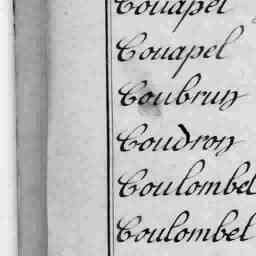 Couapel
Couapel
Coubrun
Coudron
Coulombel
Coulombel